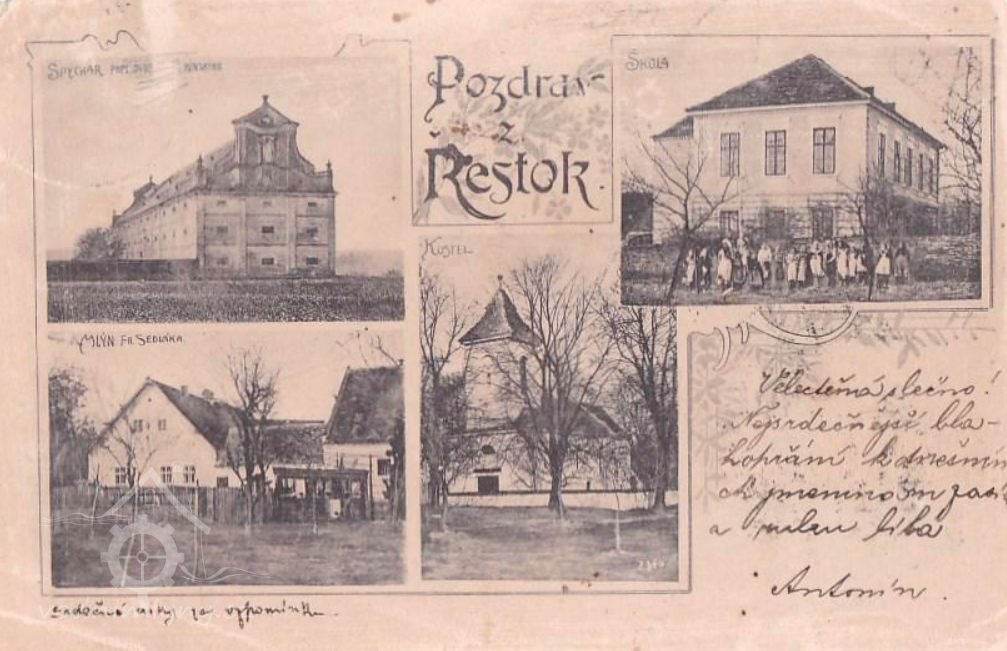 Spýchar
Pozdrav
z
Řestok.
Škola
Kostel
Mlýn Fr. Sedláka
Velectěná slečno!
Nejsrdečnější bla-
hopřání k dnešním
jmeninám
a
líbá
Antonín.
vzpomínku.